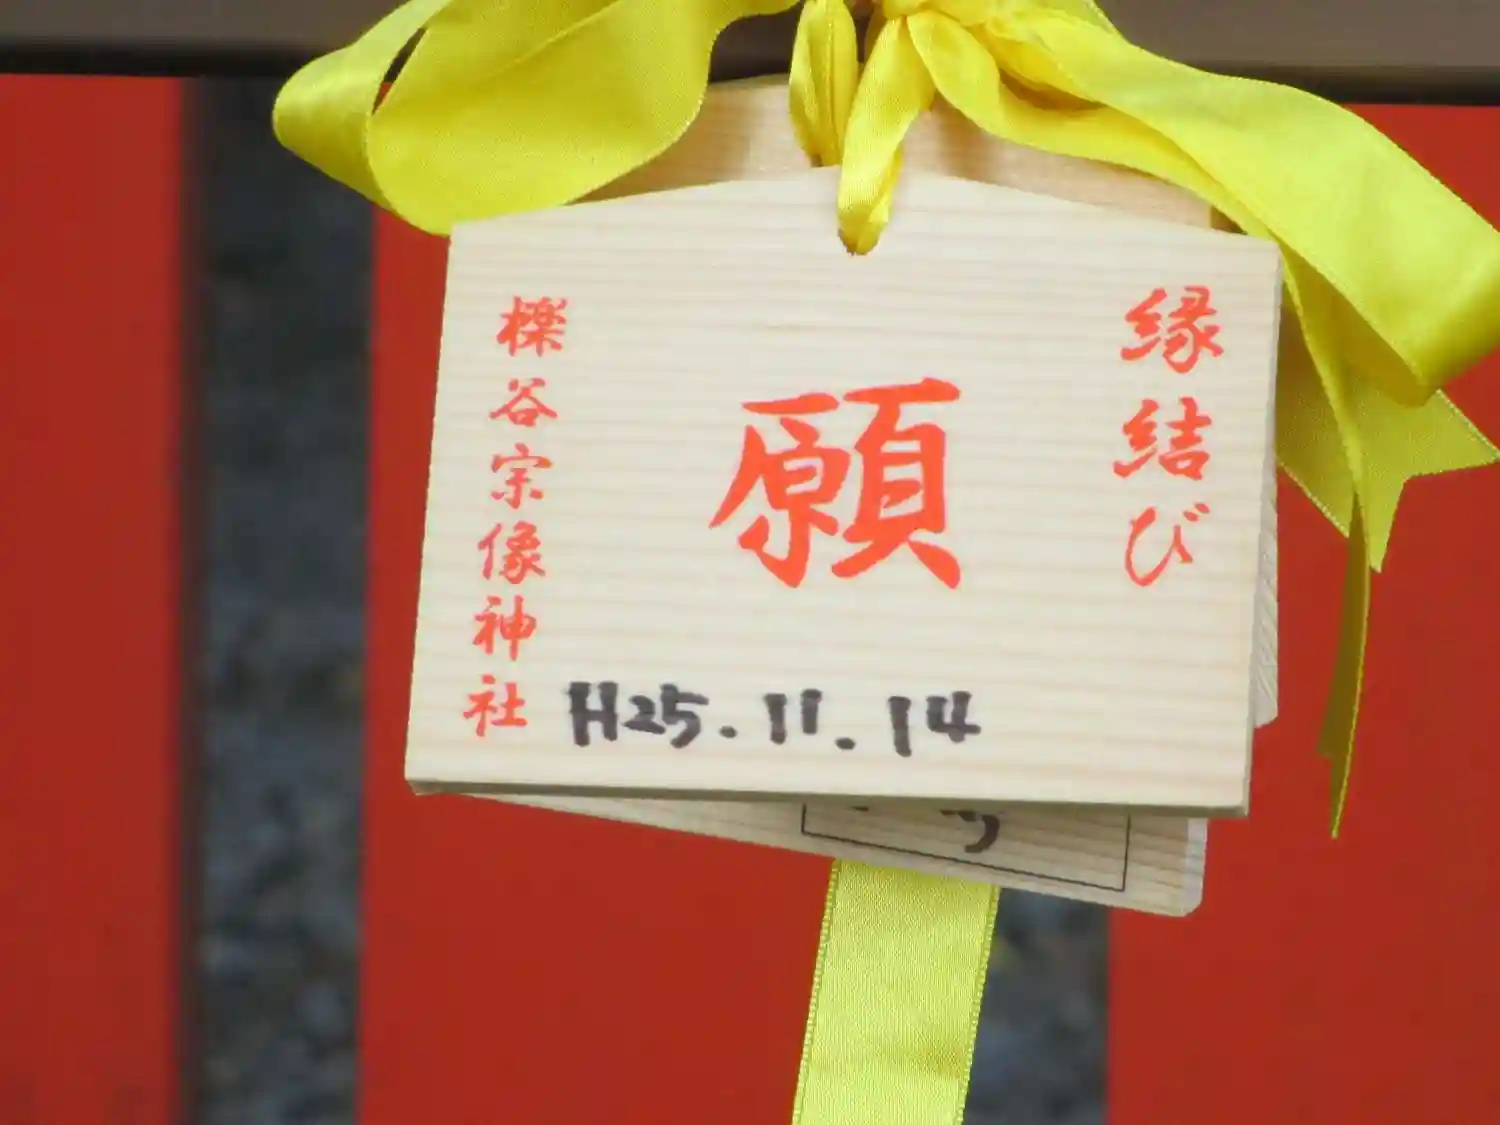 縁結び
願
櫟谷宗像神社
H25.11.14